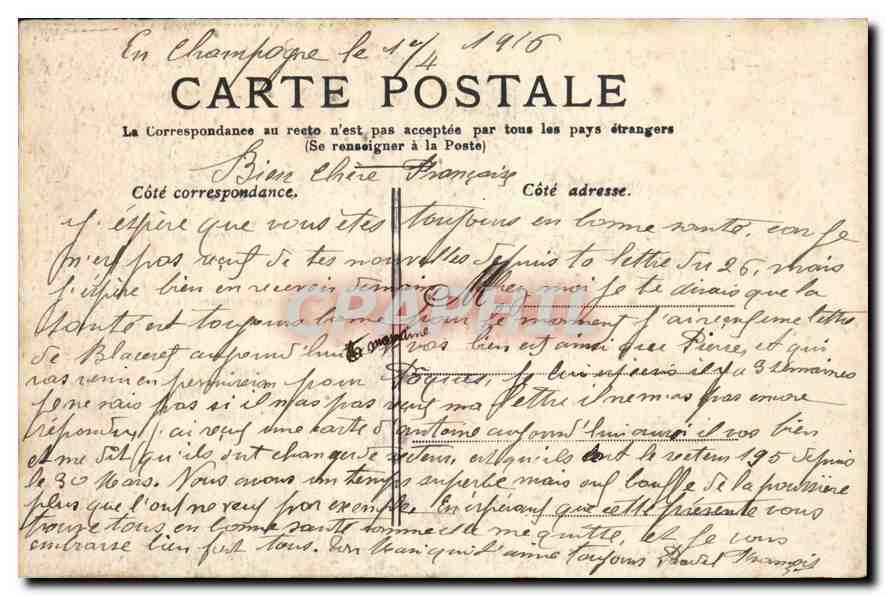 En Champagne le 1er/4 1916
CARTE POSTALE
La Correspondance au recto n'est pas acceptée par tous les pays étrangers
(Se renseigner à la Poste)
Bien chère Françoise
Côté correspondance. Côté adresse.
J'espère que vous êtes toujours en bonne santé, car je
n'ai pas reçu de tes nouvelles depuis ta lettre du 26, mais
j'espère bien en recevoir demain. chez moi je te dirais que la
CPAPHIL
santé est toujours bonne pour le moment j'ai reçu une lettre
de Blaceret aujourd'hui la grand-mère vas bien et ainsi que Pierre, et qui
vas venir en permission pour Pâques, je lui ai écris il y a 3 semaines
je ne sais pas si il n'as pas reçus ma lettre il ne m'as pas encore
répondu, j'ai reçu une carte d'antoine aujourd'hui aussi il vas bien
et me dit qu'ils ont changer de secteur, et qu'ils ont le secteur 195 depuis
le 30 Mars. Nous avons un temps superbe mais on bouffe de la poussière
plus que l'on ne veux par exemple. En espérant que cette présente vous
trouve tous en bonne santé comme elle me quitte, et je vous
embrasse bien fort tous. Ton Mari qui t'aime toujours François